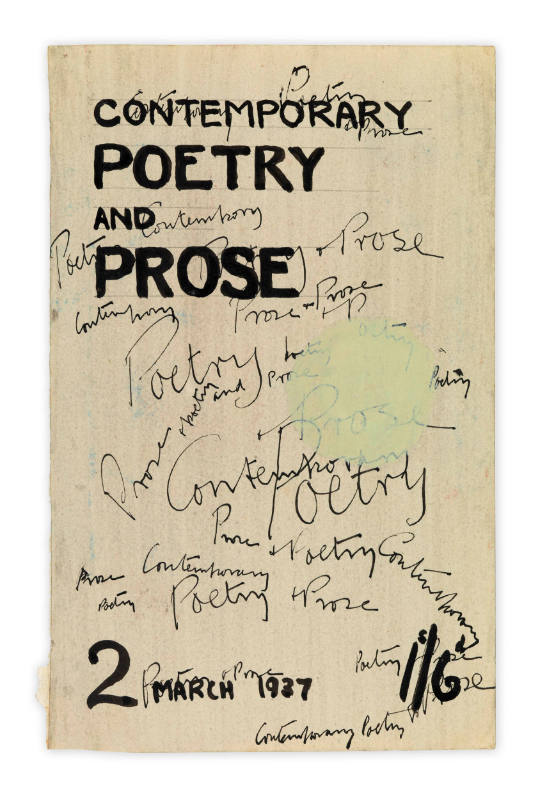 Poetry
Contemporary
& Prose
CONTEMPORARY
POETRY
AND
Contemporary
Poetry
Poetry + Prose
PROSE
Contemporary
Prose + Prose
+ P
Poetry
Poetry
Poetry
Prose
Poetry
and
+ Poetry
Prose
Prose
Contempo
Poetry
Prose
+ Poetry
Contemporary
Contemporary
Prose
Poetry
Poetry + Prose
Poetry + Prose
1s/6d
Prose
2 MARCH 1937
Poetry + Prose
Contemporary Poetry